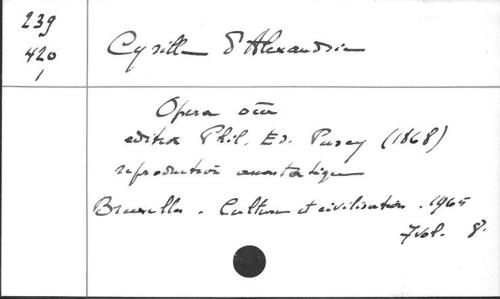 239
420
1
Cyrille d'Alexandrie
Opera oīa
edited Phil. Ed. Pusey (1868)
reproduction anastatique
Bruxelles. Culture et civilisation. 1965
7 vol. 8.